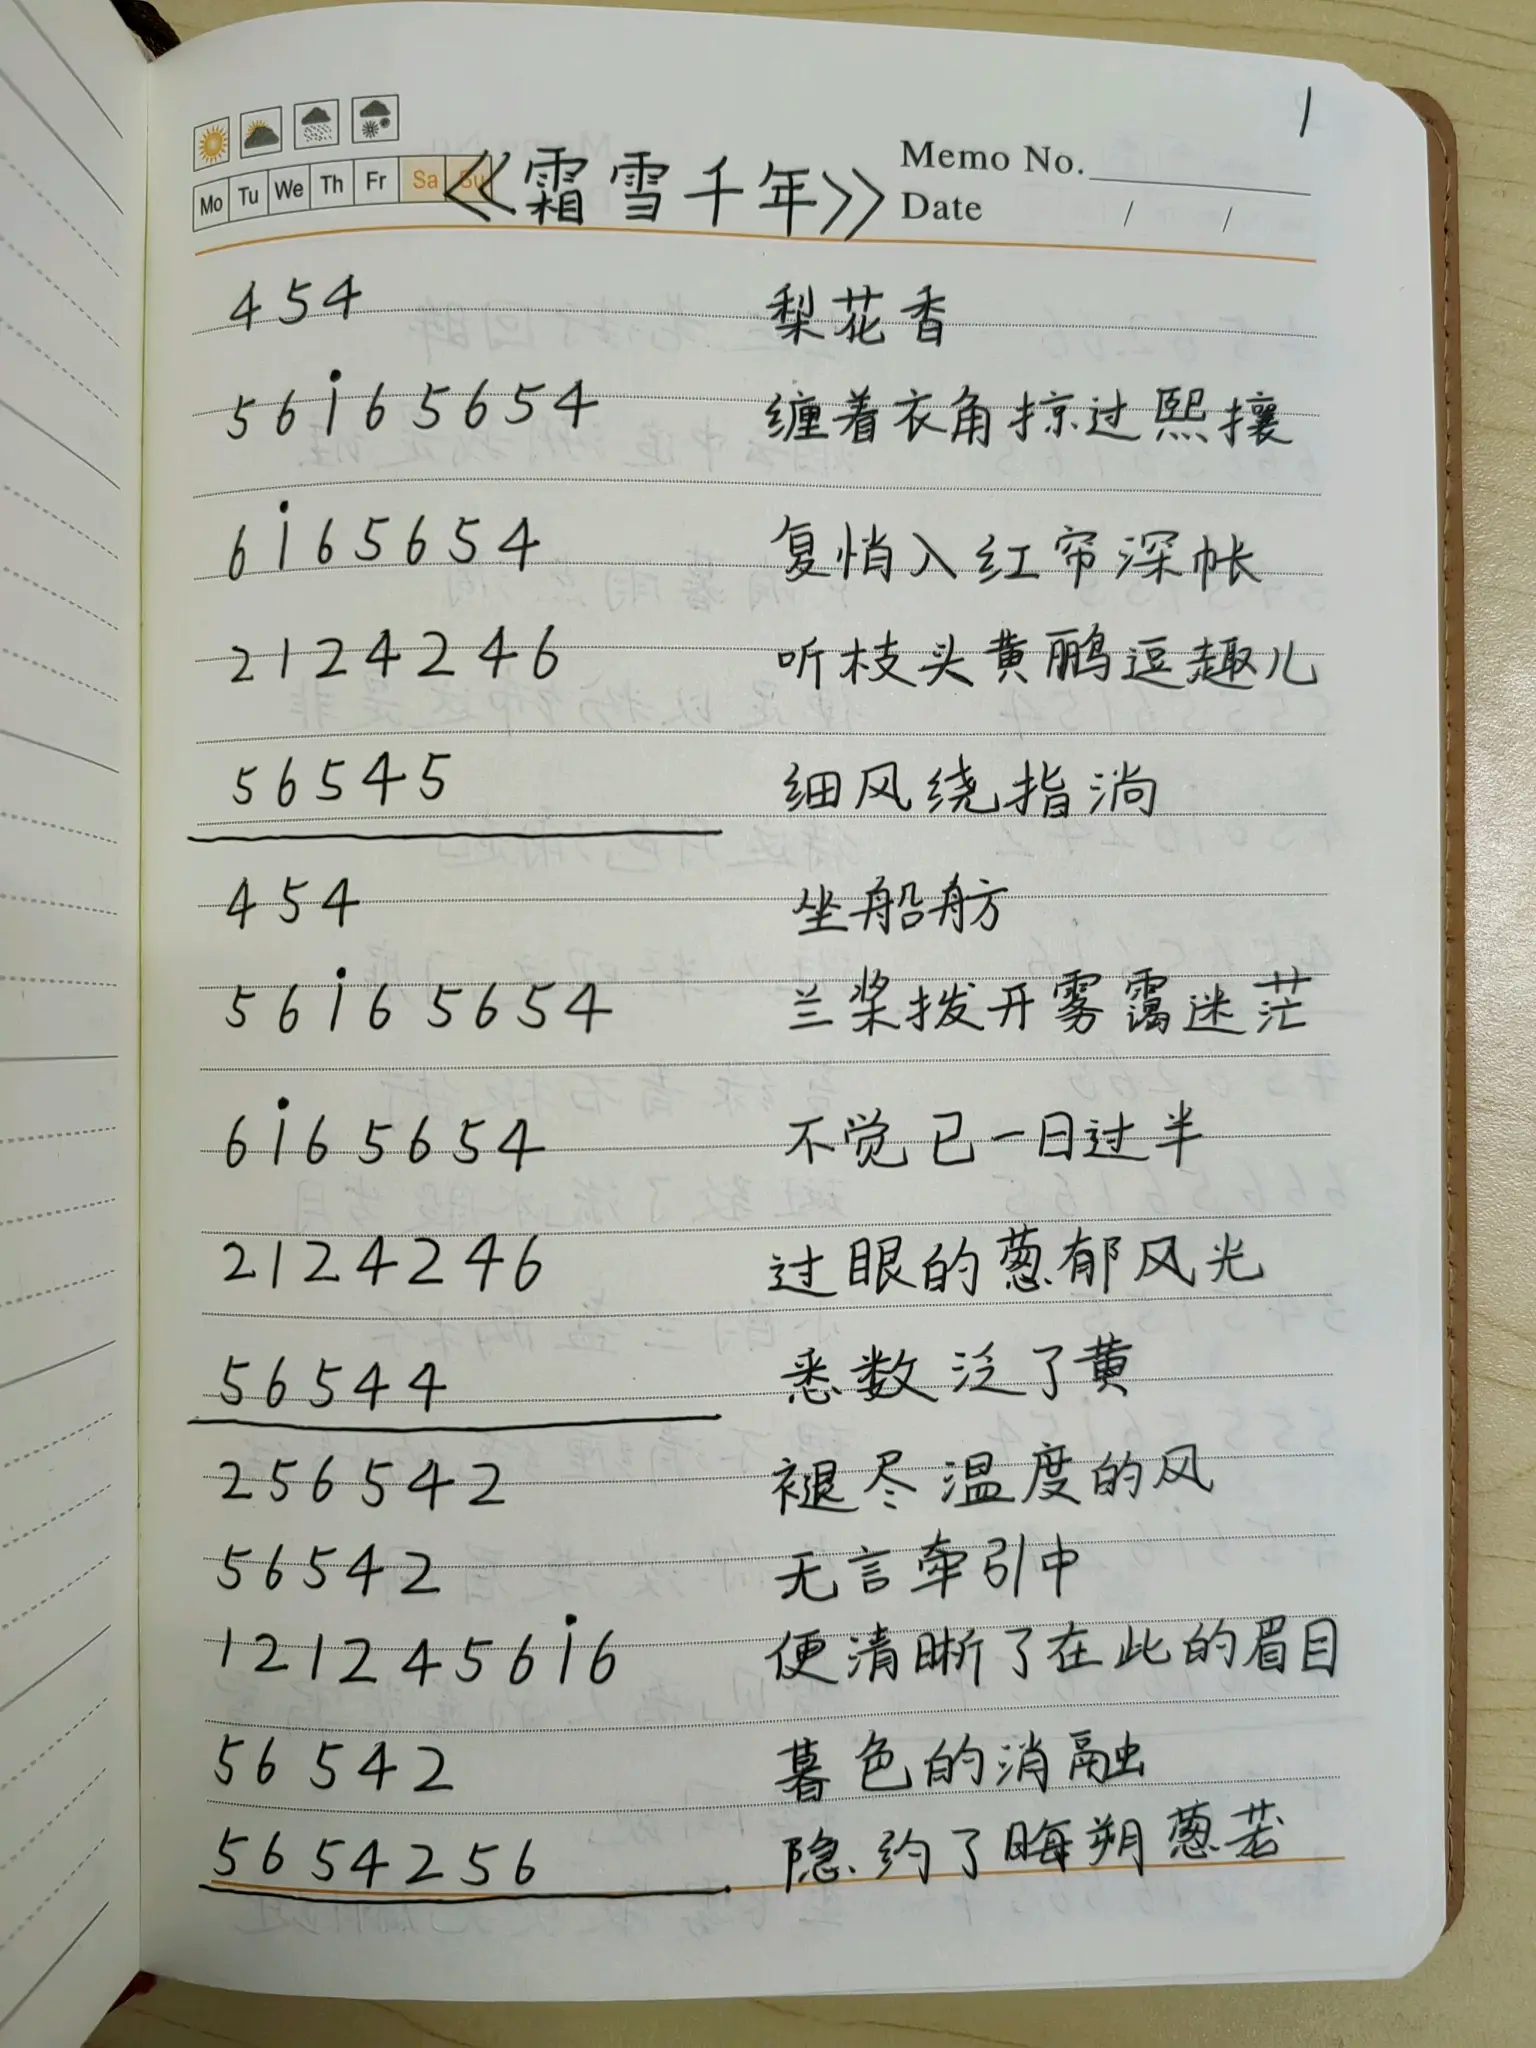 1
Mo Tu We Th Fr Sa Su
《霜雪千年》
Memo No.
Date / /
454 梨花香
56i65654 缠着衣角掠过熙攘
6i65654 复悄入红帘深帐
2124246 听枝头黄鹂逗趣儿
56545 细风绕指淌
454 坐船舫
56i65654 兰桨拨开雾霭迷茫
6i65654 不觉已一日过半
2124246 过眼的葱郁风光
56544 悉数泛了黄
256542 褪尽温度的风
56542 无言牵引中
1212456i6 便清晰了在此的眉目
56542 暮色的消融
5654256 隐约了晦朔葱茏